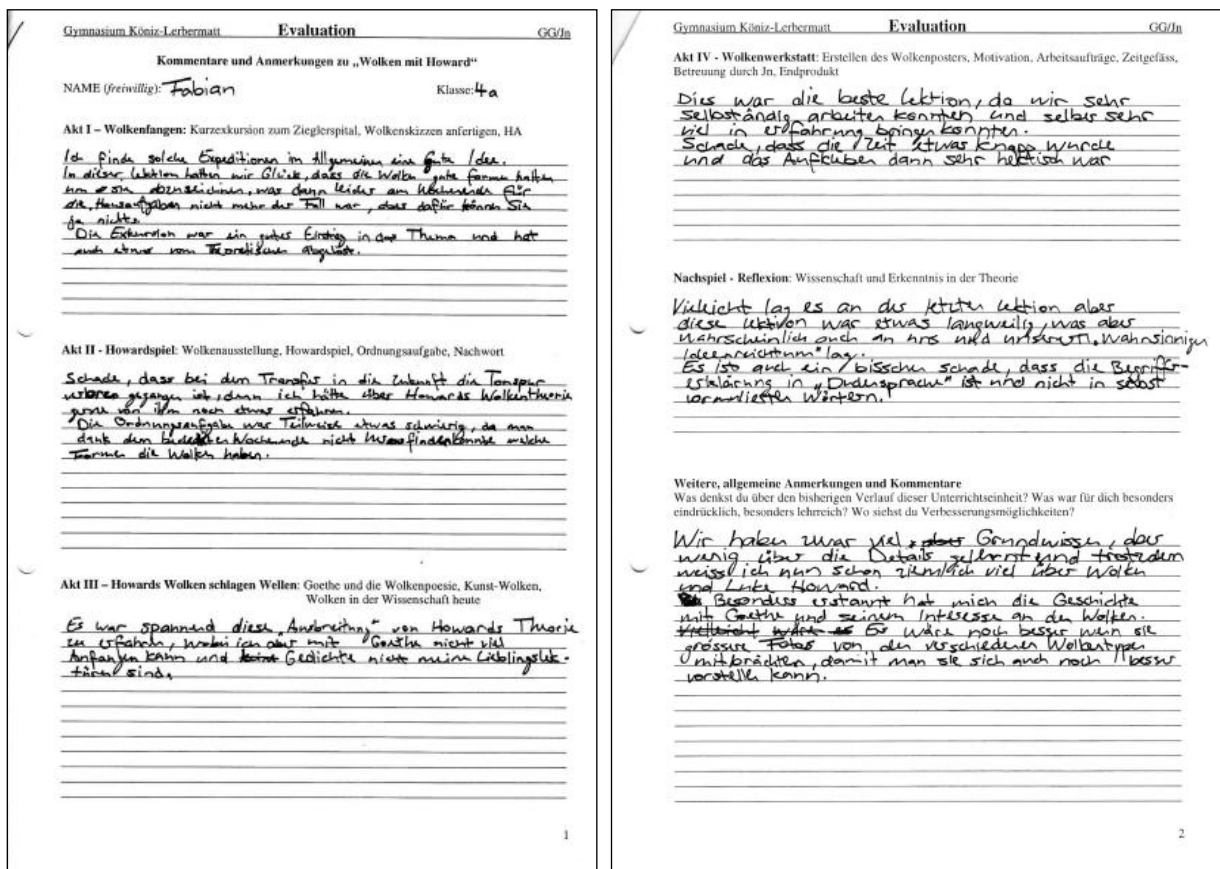 Gymnasium Köniz-Lerbermatt Evaluation GG/Jn
Kommentare und Anmerkungen zu „Wolken mit Howard“
NAME (freiwillig): Fabian Klasse: 4a
Akt I – Wolkenfangen: Kurzexkursion zum Zieglerspital, Wolkenskizzen anfertigen, HA
Ich finde solche Expeditionen im Allgemeinen eine gute Idee.
In dieser Lektion hatten wir Glück, dass die Wolken gute Formen hatten
um sie abzuzeichnen, was dann leider am Wochenende für
die Hausaufgaben nicht mehr der Fall war, dafür können Sie
ja nichts.
Die Exkursion war ein gutes Einstieg in das Thema und hat
auch etwas vom Theoretischen abgelöst.
Akt II - Howardspiel: Wolkenausstellung, Howardspiel, Ordnungsaufgabe, Nachwort
Schade, dass bei dem Transfer in die Zukunft die Tonspur
verloren gegangen ist, denn ich hätte über Howards Wolkentheorie
gerne von ihm noch etwas erfahren.
Die Ordnungsaufgabe war Teilweise etwas schwierig, da man
dank dem bedeckten Wochenende nicht herausfinden konnte welche
Formen die Wolken haben.
Akt III – Howards Wolken schlagen Wellen: Goethe und die Wolkenpoesie, Kunst-Wolken,
Wolken in der Wissenschaft heute
Es war spannend diese „Ausbreitung“ von Howards Theorie
zu erfahren, wobei ich aber mit Goethe nicht viel
Anfangen kann und Gedichte nicht meine Lieblingslek-
türen sind.
1
Gymnasium Köniz-Lerbermatt Evaluation GG/Jn
Akt IV - Wolkenwerkstatt: Erstellen des Wolkenposters, Motivation, Arbeitsaufträge, Zeitgefäss,
Betreuung durch Jn, Endprodukt
Dies war die beste Lektion, da wir sehr
selbständig arbeiten konnten und selber sehr
viel in erfahrung bringen konnten.
Schade, dass die Zeit etwas knapp wurde
und das Aufkleben dann sehr hektisch war
Nachspiel - Reflexion: Wissenschaft und Erkenntnis in der Theorie
Vielleicht lag es an der letzten Lektion aber
diese Lektion war etwas langweilig, was aber
wahrscheinlich auch an uns und unserem „Wahnsinnigen
Ideenreichtum“ lag.
Es ist auch ein bisschen schade, dass die Begriffs-
erklärung in „Dudensprache“ ist und nicht in selbst
vormulierten Wörtern.
Weitere, allgemeine Anmerkungen und Kommentare
Was denkst du über den bisherigen Verlauf dieser Unterrichtseinheit? Was war für dich besonders
eindrücklich, besonders lehrreich? Wo siehst du Verbesserungsmöglichkeiten?
Wir haben zwar viel Grundwissen, aber
wenig über die Details gelernt und trotzdem
weiss ich nun schon ziemlich viel über Wolken
und Luke Howard.
Besonders erstaunt hat mich die Geschichte
mit Goethe und seinem Interesse an den Wolken.
Es wäre noch besser wenn sie
grössere Fotos von den verschiedenen Wolkentypen
mitbrächten, damit man sie sich auch noch besser
vorstellen kann.
2